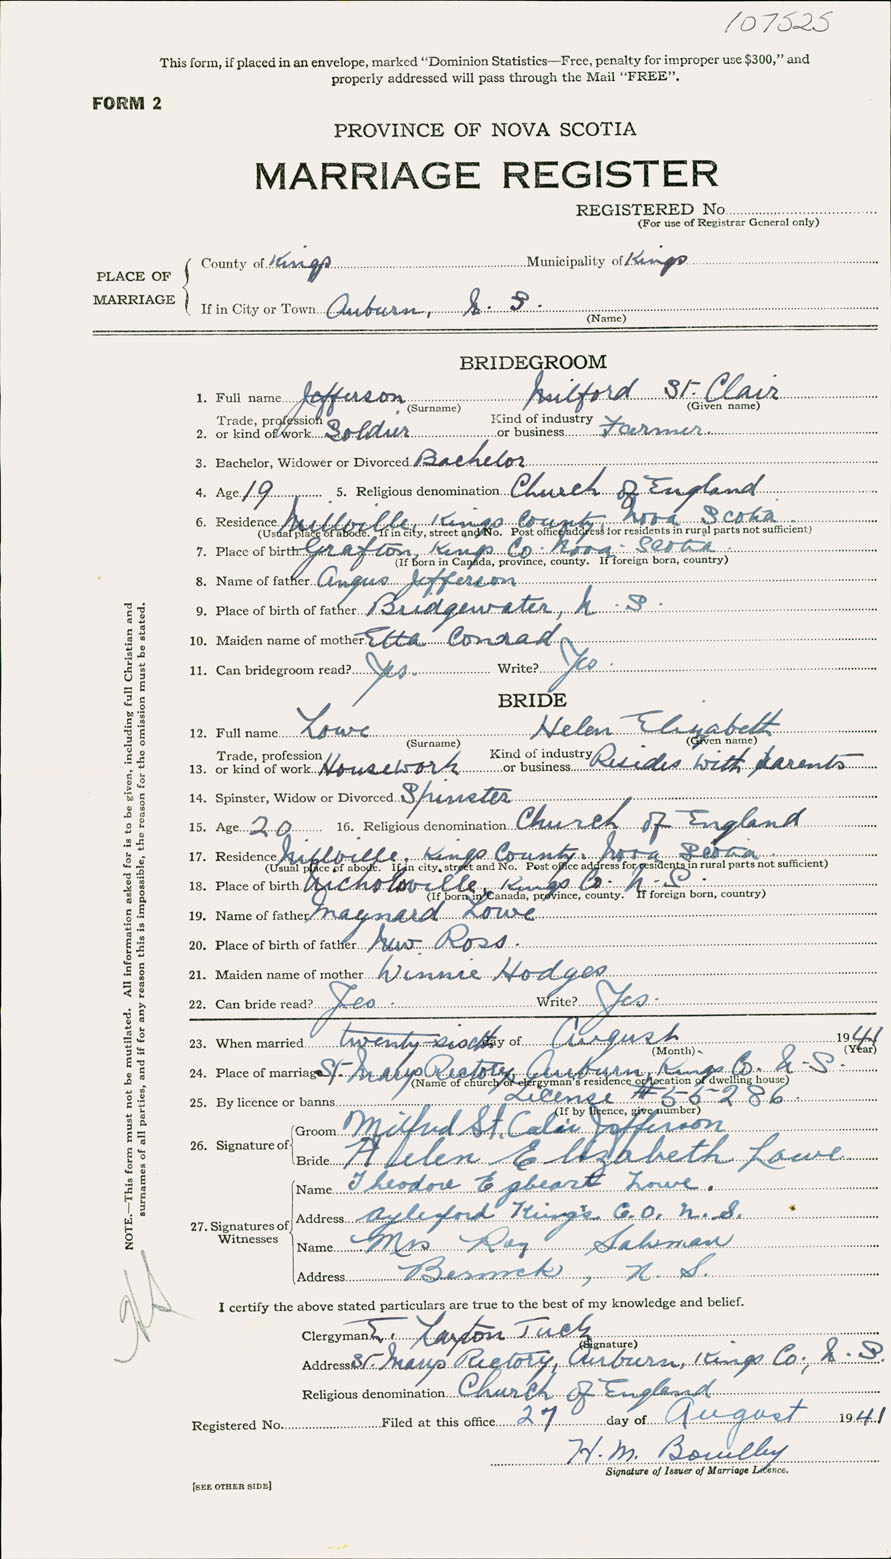 107525
This form, if placed in an envelope, marked "Dominion Statistics—Free, penalty for improper use $300," and
properly addressed will pass through the Mail "FREE".
FORM 2
PROVINCE OF NOVA SCOTIA
MARRIAGE REGISTER
REGISTERED No.
(For use of Registrar General only)
PLACE OF MARRIAGE
County of Kings Municipality of Kings
If in City or Town Auburn, N. S.
(Name)
BRIDEGROOM
1. Full name Jefferson Milford St. Clair
(Surname) (Given name)
2. Trade, profession or kind of work Soldier Kind of industry or business Farmer
3. Bachelor, Widower or Divorced Bachelor
4. Age 19 5. Religious denomination Church of England
6. Residence Millville, Kings County, Nova Scotia
(Usual place of abode. If in city, street and No. Post office address for residents in rural parts not sufficient)
7. Place of birth Grafton, Kings Co. Nova Scotia
(If born in Canada, province, county. If foreign born, country)
8. Name of father Angus Jefferson
9. Place of birth of father Bridgewater, N. S.
10. Maiden name of mother Etta Conrad
11. Can bridegroom read? Yes. Write? Yes.
BRIDE
12. Full name Lowe Helen Elizabeth
(Surname) (Given name)
13. Trade, profession or kind of work Housework Kind of industry or business Resides with parents
14. Spinster, Widow or Divorced Spinster
15. Age 20 16. Religious denomination Church of England
17. Residence Millville, Kings County, Nova Scotia
(Usual place of abode. If in city, street and No. Post office address for residents in rural parts not sufficient)
18. Place of birth Nicholsville, Kings Co. N.S.
(If born in Canada, province, county. If foreign born, country)
19. Name of father Maynard Lowe
20. Place of birth of father New Ross.
21. Maiden name of mother Winnie Hodges
22. Can bride read? Yes. Write? Yes.
23. When married twenty-sixth day of August 1941
(Month) (Year)
24. Place of marriage St. Marys Rectory, Auburn, Kings Co. N.S.
(Name of church or clergyman's residence or location of dwelling house)
25. By licence or banns License # 55286.
(If by licence, give number)
26. Signature of
Groom Milfred St. Calir Jefferson
Bride Helen Elizabeth Lowe
27. Signatures of Witnesses
Name Theodore Egbeart Lowe.
Address Aylesford Kings C.O. N.S.
Name Mrs Roy
Address Berwick, N. S.
I certify the above stated particulars are true to the best of my knowledge and belief.
Clergyman E. Laxton Tuck
(Signature)
Address St. Marys Rectory, Auburn, Kings Co., N.S.
Religious denomination Church of England
Registered No. Filed at this office 27 day of August 1941
H. M.
Signature of Issuer of Marriage Licence.
[SEE OTHER SIDE]
NOTE.—This form must not be mutilated. All information asked for is to be given, including full Christian and
surnames of all parties, and if for any reason this is impossible, the reason for the omission must be stated.